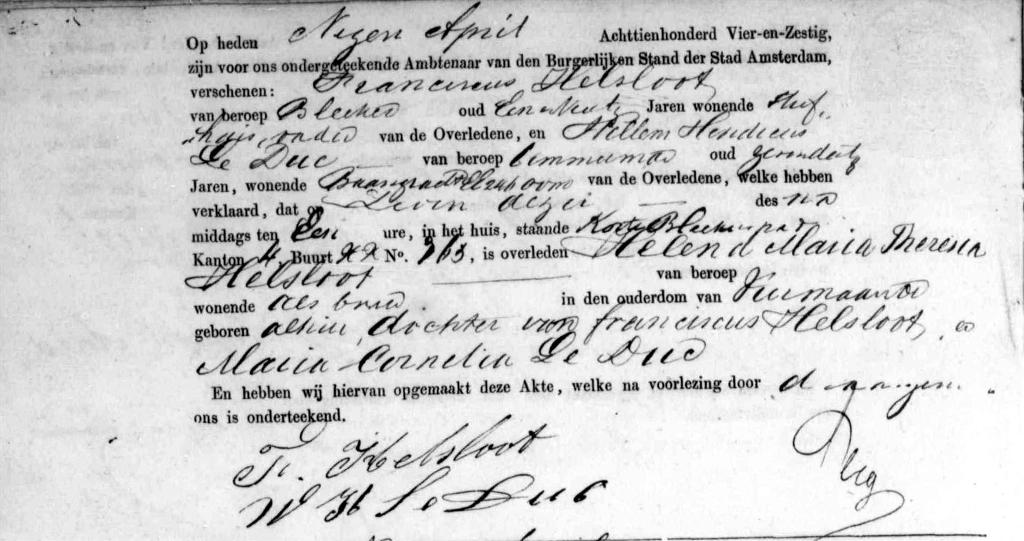 Op heden Negen April Achttienhonderd Vier-en-Zestig,
zijn voor ons ondergeteekende Ambtenaar van den Burgerlijken Stand der Stad Amsterdam,
verschenen: Franciscus Helsloot
van beroep Bleeker oud Jaren wonende
van de Overledene, en Willem Hendricus
Le Duc van beroep oud
Jaren, wonende van de Overledene, welke hebben
verklaard, dat op Zeven dezer des na
middags ten Een ure, in het huis, staande Korte
Kanton 4, Buurt XX No. 363, is overleden Helena Maria Theresia
Helsloot van beroep
wonende als boven in den ouderdom van Vier maanden
geboren alhier, dochter van Franciscus Helsloot en
Maria Cornelia Le Duc
En hebben wij hiervan opgemaakt deze Akte, welke na voorlezing door
ons is onderteekend.
Fr. Helsloot
W H Le Duc